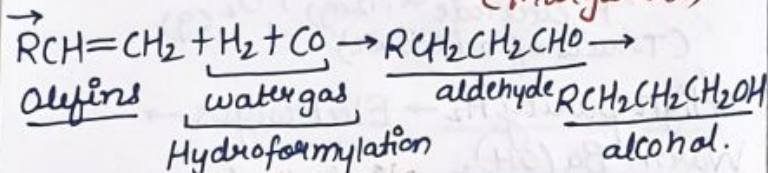 →
RCH=CH₂+H₂+CO→RCH₂CH₂CHO→
Olefins water gas aldehyde RCH₂CH₂CH₂OH
Hydroformylation alcohol.